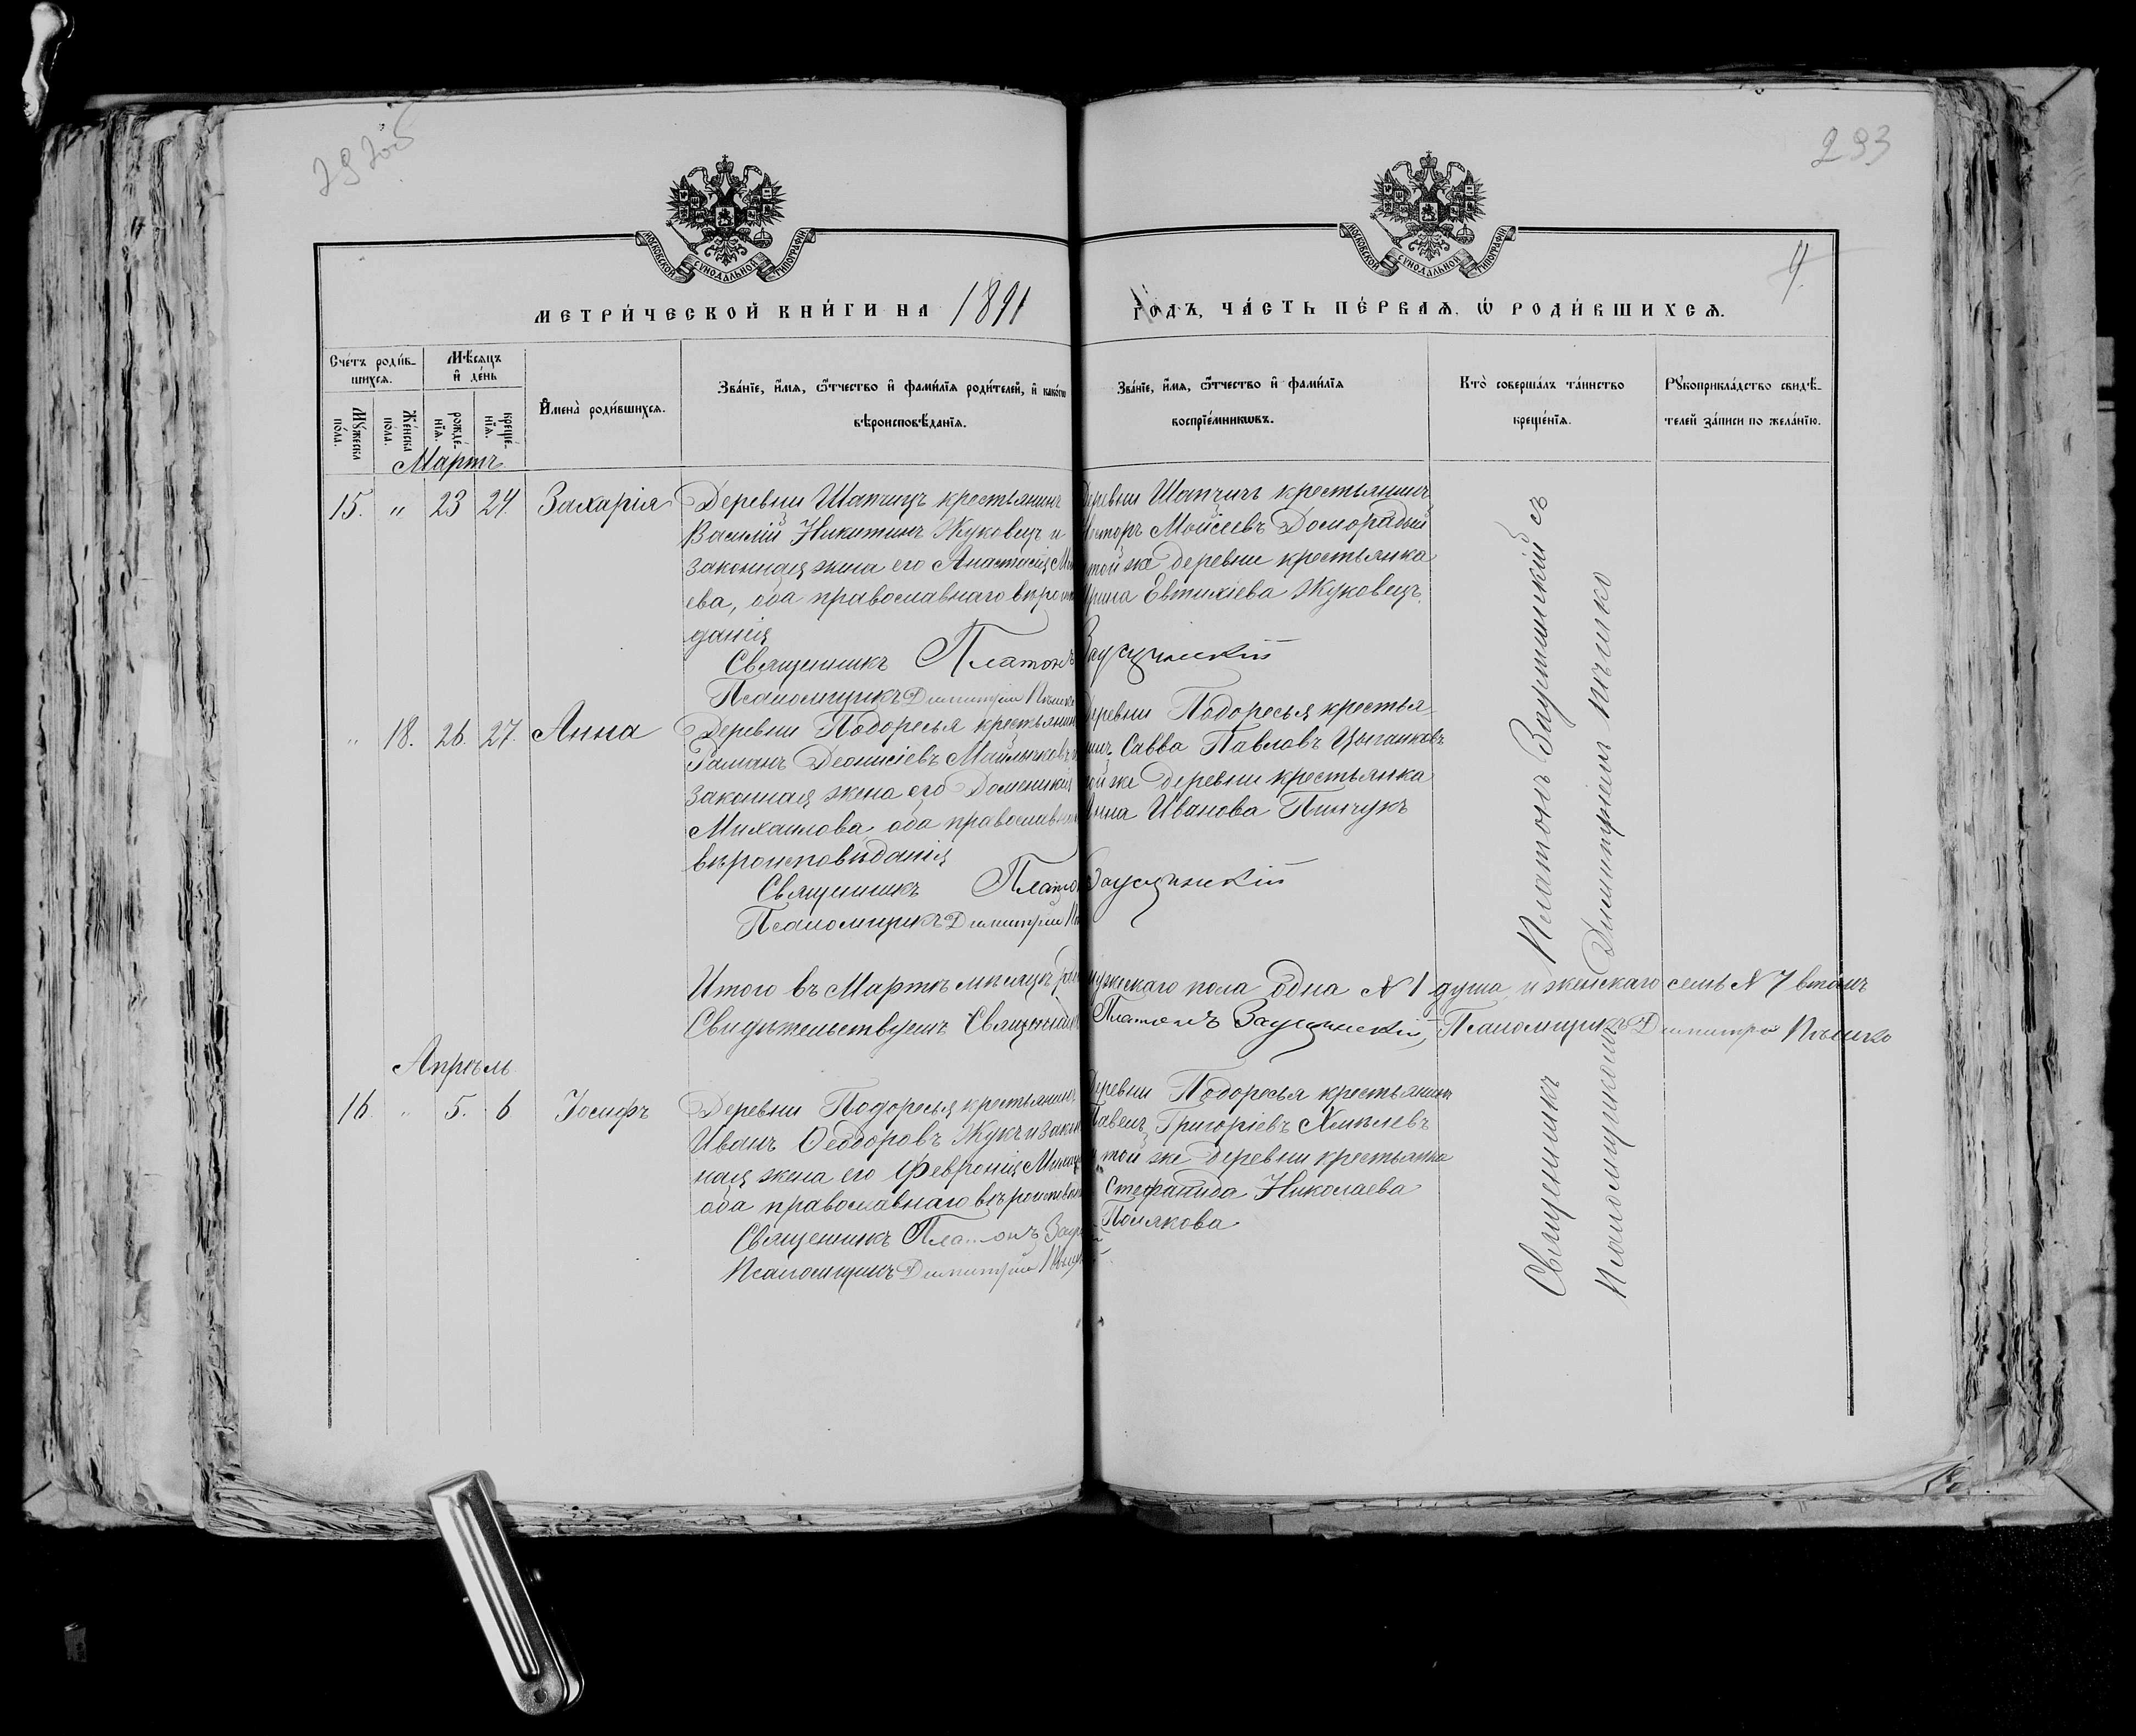 293
МОСКОВСКОЙ СУНОДАЛЬНОЙ ТИПОГРАФІИ
МОСКОВСКОЙ СУНОДАЛЬНОЙ ТИПОГРАФІИ
4
МЕТРИ́ЧЕСКОЙ КНИ́ГИ НА 1891
ГОДЪ, ЧА́СТЬ ПЕ́РВАЯ, Ѡ РОДИ́ВШИХСЯ.
Сче́тъ роди́в-
шихся.
Мѣ́сяцъ
и де́нь
Мꙋ́жеска
по́ла.
Же́нска
по́ла.
рожде́-
нїя.
креще́-
нїя.
Имена̀ роди́вшихся.
Зва́нїе, и́мя, ѿчество и фами́лїя роди́телей, и како́гѡ
вѣроисповѣ́данїя.
Зва́нїе, и́мя, ѿчество и фами́лїя
воспрїе́мникѡвъ.
Кто̀ соверша́лъ та́инство
креще́нїя.
Рꙋкоприкла́дство свидѣ́-
телей за́писи по жела́нїю.
Мартъ
15. " 23 24. Захарія
Деревни Шапчицъ крестьянинъ
Василій Никитинъ Жуковецъ и
законная жена его Анастасія
ева, оба православнаго вѣроиспо
данія
Священникъ Платонъ Заусцинскій
Псаломщикъ Димитрій Пѣшко
Деревни Шапчицъ крестьянинъ
Несторъ Моисеевъ Доморадый
той же деревни крестьянка
Ирина Евтихіева Жуковецъ.
" 18. 26. 27. Анна
Деревни Подоресья крестьянинъ
Романъ Деонисіевъ
законная жена его Доминикія
Михаилова, оба православнаго
вѣроисповѣданія
Священникъ Платонъ Заусцинскій
Псаломщикъ Димитрій
Деревни Подоресья крестья-
нинъ Савва Павловъ Цыганковъ
той же деревни крестьянка
Анна Иванова Пинчукъ
Итого въ Мартѣ мѣсяцѣ мужескаго пола одна № 1 душа, и женскаго семь № 7 въ томъ
Свидѣтельствуемъ Священникъ Платонъ Заусцинскій, Псаломщикъ Димитрій Пѣшко
Апрѣль
16. " 5. 6 Іосифъ
Деревни Подоресья крестьянинъ
Иванъ Ѳеодоровъ Жукъ и закон
ная жена его Февронія
оба православнаго вѣроисповѣд
Священникъ Платонъ
Псаломщикъ Димитрій
Деревни Подоресья крестьянинъ
Павелъ Григоріевъ Хмѣлевъ
и той же деревни крестьянка
Стефанида Николаева
Полякова
Священникъ Платонъ Заусцинскій съ
Псаломщикомъ Димитріемъ Пѣшко